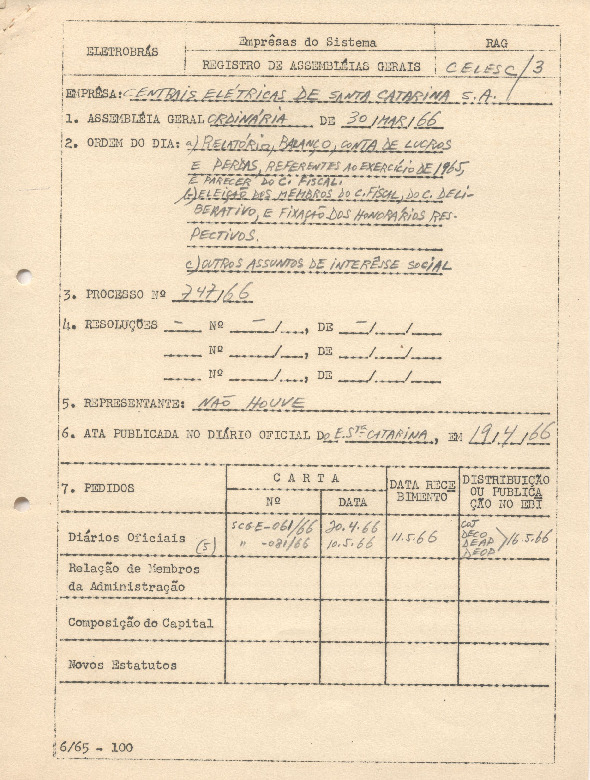 ELETROBRÁS
Emprêsas do Sistema
RAG
REGISTRO DE ASSEMBLÉIAS GERAIS
CELESC/3
EMPRÊSA: CENTRAIS ELÉTRICAS DE SANTA CATARINA S.A.
1. ASSEMBLÉIA GERAL ORDINÁRIA DE 30/MAR/66
2. ORDEM DO DIA: a) RELATÓRIO, BALANÇO, CONTA DE LUCROS
E PERDAS, REFERENTES AO EXERCÍCIO DE 1965,
E PARECER DO C. FISCAL.
b) ELEIÇÃO DOS MEMBROS DO C. FISCAL, DO C. DELI-
BERATIVO, E FIXAÇÃO DOS HONORÁRIOS RES-
PECTIVOS.
c) OUTROS ASSUNTOS DE INTERÊSSE SOCIAL
3. PROCESSO Nº 747/66
4. RESOLUÇÕES — Nº —/...., DE —/..../....
Nº ..../...., DE ..../..../....
Nº ..../...., DE ..../..../....
5. REPRESENTANTE: NÃO HOUVE
6. ATA PUBLICADA NO DIÁRIO OFICIAL DO E. STA CATARINA, EM 19/4/66
7. PEDIDOS
CARTA
Nº
DATA
DATA RECE
BIMENTO
DISTRIBUIÇÃO
OU PUBLICA
ÇÃO NO EBI
Diários Oficiais (5)
SCGE-061/66 20.4.66
" -081/66 10.5.66
11.5.66
COJ
DECO
DEAP
DEOP
16.5.66
Relação de Membros
da Administração
Composição do Capital
Novos Estatutos
6/65 - 100